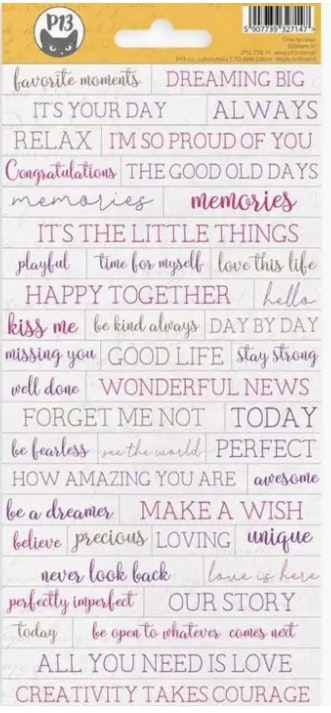 P13
5 907739 327147
favorite moments DREAMING BIG
IT'S YOUR DAY ALWAYS
RELAX I'M SO PROUD OF YOU
Congratulations THE GOOD OLD DAYS
memories memories
IT'S THE LITTLE THINGS
playful time for myself love this life
HAPPY TOGETHER hello
kiss me be kind always DAY BY DAY
missing you GOOD LIFE stay strong
well done WONDERFUL NEWS
FORGET ME NOT TODAY
be fearless see the world PERFECT
HOW AMAZING YOU ARE awesome
be a dreamer MAKE A WISH
believe precious LOVING unique
never look back love is here
perfectly imperfect OUR STORY
today be open to whatever comes next
ALL YOU NEED IS LOVE
CREATIVITY TAKES COURAGE